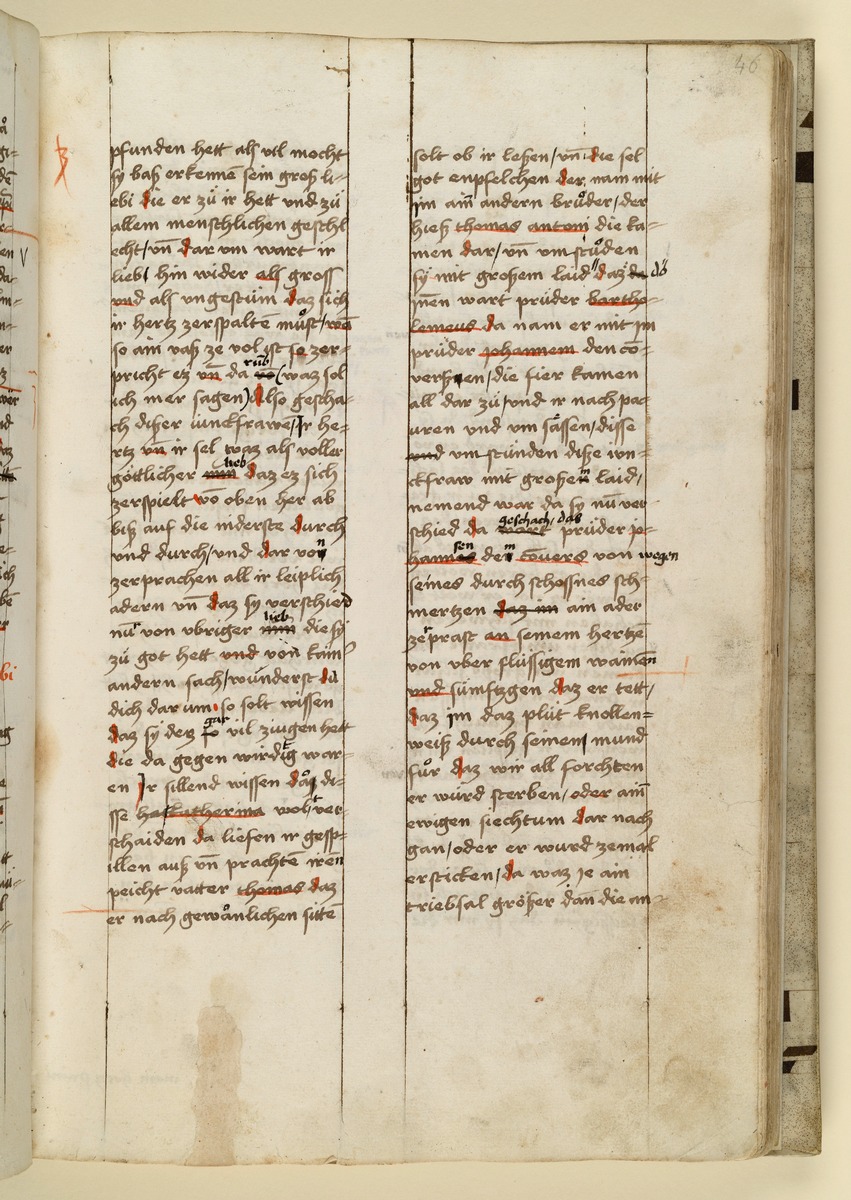 46
pfunden hett als vil mocht
sy baß erkennē sein groß li-
ebi die er zů ir hett vnd zů
allem menschlichen geschl
echt / vn̄ dar vm wart ir
lieb / hin wider als gross
vnd als vngestüm daz sich
ir hertz zerspaltē můst / wēn
so ain vaß ze vol ist so zer-
pricht ez vn̄ da (waz sol
ich mer sagen) Also gescha-
ch dißer iunckfrawen / Ir he-
rtz vn̄ ir sel waz als voller
göttlicher lieb daz ez sich
zerspielt vō oben her ab
biß auf die niderste durch
vnd durch / vnd dar von
zerprachen all ir leiplich
adern vn̄ daz sy verschied
nuͤr von vbriger lieb die sy
zů got hett vnd von kain
andern sach / wunderst du
dich dar um so solt wissen
daz sy dez gar vil zugen hett
die da gegen wirdig war-
en Ir sillend wissen daz di-
sse katherina wolt ver-
schaiden da liefen ir gesp-
illen auß vn̄ prachtē iren
peicht vatter thomas daz
er nach gewǎnlichen sittē
solt ob ir leßen / vn̄ die sel
got enpfelchen der nam mit
im ain andern brůder / der
hieß thomas antom die ka-
men dar / vn̄ vm stůden
sy mit großem laid daz do
inen wart prüder bartho-
lemeus da nam er mit im
prüder johannem den co-
verßen / die fier kamen
all dar zů / vnd ir nach pa-
uren vnd vm sässen / disse
vnd vm stünden diße iun-
ckfraw mit großen laid /
nemend war da sy nů ver
schied da geschach / das prüder jo-
hansen dem couers von wegen
seines durch schossnes sch-
mertzen daz im ain ader
zerprast an seinem hertzē
von vber flüssigem wainen
vnd sümftzgen daz er tett /
daz im daz plůt knollen-
weiß durch seinen mund
fůr daz wir all forchten
er würd sterben / oder ain
ewigen siechtum dar nach
gan / oder er wurd zemal
ersticken / da waz je ain
triebsal größer dan die an-